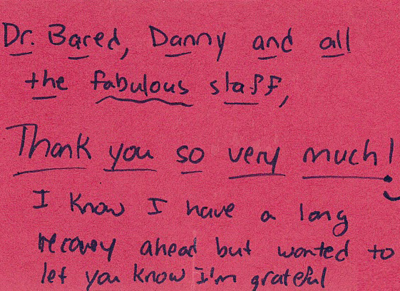 Dr. Bared, Danny and all
the fabulous staff,
Thank you so very much!
I know I have a long
recovery ahead but wanted to
let you know I'm grateful